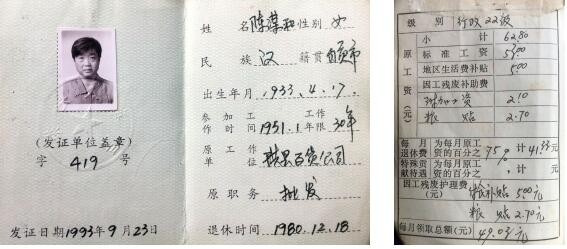 (发证单位盖章)
字 419 号
发证日期1993年9月23日
姓 名 陈藻和 性别 女
民 族 汉 籍贯 自贡市
出生年月 1933.4.17.
参 加 工 工作
作时间 1951.1 年限 30年
原工作
单 位 县百货公司
原职务 批发
退休时间 1980.12.18
级 别 行政22级
原工资(元)
小 计 62.80
标准工资 53.00
地区生活费补贴 5.00
因工残废补助费
附加工资 2.10
粮 贴 2.70
每月 为每月原工
退休费 资的百分之 75% 计 41.33元
特殊贡 为每月原工
献待遇 资的百分之 计 元
因工残废护理费(元) 补贴 5.00元
粮 贴 2.70元
每月领取总额(元) 49.03元